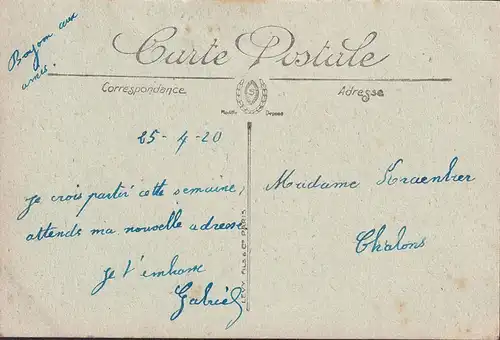 Bonjour aux
amis.
Carte Postale
Correspondance
Adresse
Modèle Déposé
25-4-20
Je crois partir cette semaine,
attends ma nouvelle adresse
Je t'embrasse
Gabriel
Madame
Chalons
LEVY FILS & Cie PARIS